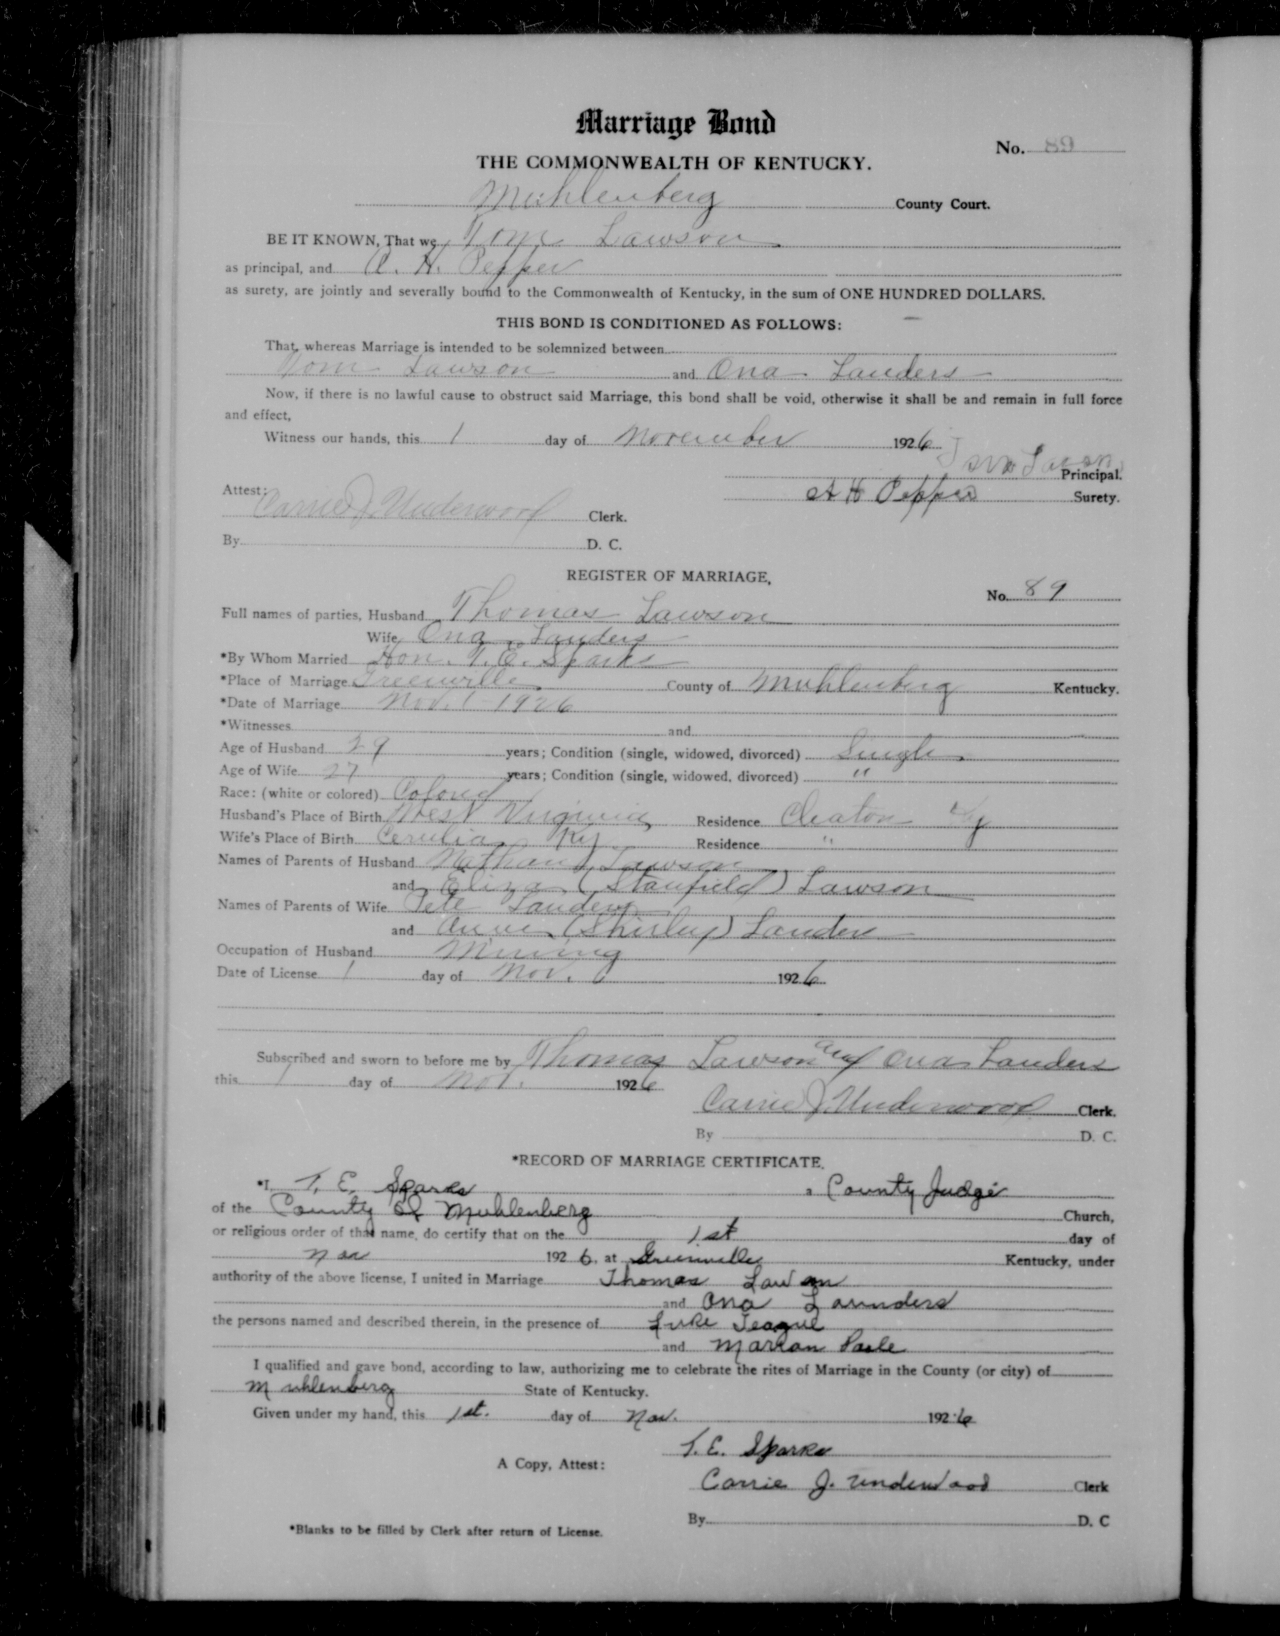 Marriage Bond
No. 89
THE COMMONWEALTH OF KENTUCKY.
Muhlenberg County Court.
BE IT KNOWN, That we Tom Lawson
as principal, and A. H. Pepper
as surety, are jointly and severally bound to the Commonwealth of Kentucky, in the sum of ONE HUNDRED DOLLARS.
THIS BOND IS CONDITIONED AS FOLLOWS:
That, whereas Marriage is intended to be solemnized between
Tom Lawson and Ona Landers
Now, if there is no lawful cause to obstruct said Marriage, this bond shall be void, otherwise it shall be and remain in full force
and effect,
Witness our hands, this 1 day of November 1926
Tom Principal.
A H Pepper Surety.
Attest: Carrie J. Underwood Clerk.
By D. C.
REGISTER OF MARRIAGE,
No. 89
Full names of parties, Husband Thomas Lawson
Wife Ona Landers
*By Whom Married Hon. T. E. Sparks
*Place of Marriage Greenville County of Muhlenberg Kentucky.
*Date of Marriage Nov. 1 - 1926
*Witnesses and
Age of Husband 29 years; Condition (single, widowed, divorced) Single
Age of Wife 27 years; Condition (single, widowed, divorced) "
Race: (white or colored) Colored
Husband's Place of Birth West Virginia Residence Cleaton Ky
Wife's Place of Birth Cerulia, Ky. Residence "
Names of Parents of Husband Nathan Lawson
and Eliza (Stanfield) Lawson
Names of Parents of Wife Pete Landers
and (Shirley) Landers
Occupation of Husband Mining
Date of License 1 day of Nov. 1926
Subscribed and sworn to before me by Thomas Lawson and Ona Landers
this 1 day of Nov. 1926
Carrie J. Underwood Clerk.
By D. C.
*RECORD OF MARRIAGE CERTIFICATE.
*I, T. E. Sparks a County Judge
of the County of Muhlenberg Church,
or religious order of that name, do certify that on the 1st day of
Nov 1926, at Greenville Kentucky, under
authority of the above license, I united in Marriage Thomas Lawson
and Ona Launders
the persons named and described therein, in the presence of Luke Teague
and Marian
I qualified and gave bond, according to law, authorizing me to celebrate the rites of Marriage in the County (or city) of
Muhlenberg State of Kentucky.
Given under my hand, this 1st. day of Nov. 1926
T. E. Sparks
A Copy, Attest:
Carrie J. Underwood Clerk
By D. C
*Blanks to be filled by Clerk after return of License.